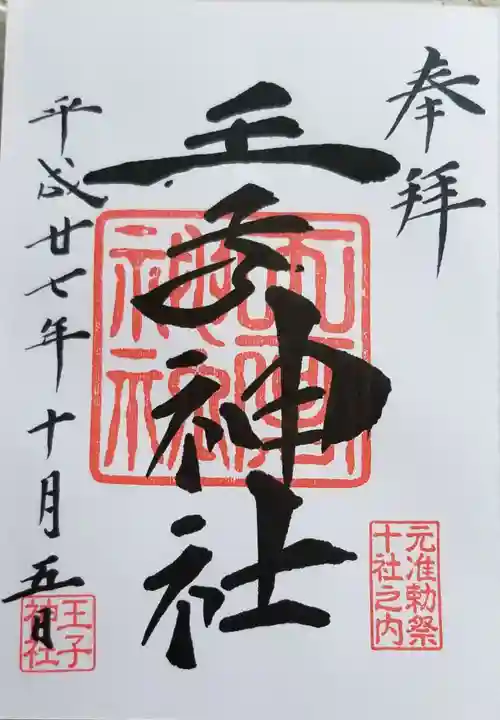 奉拝
王子神社
平成廿七年十月五日
元准勅祭
十社之内
王子
神社